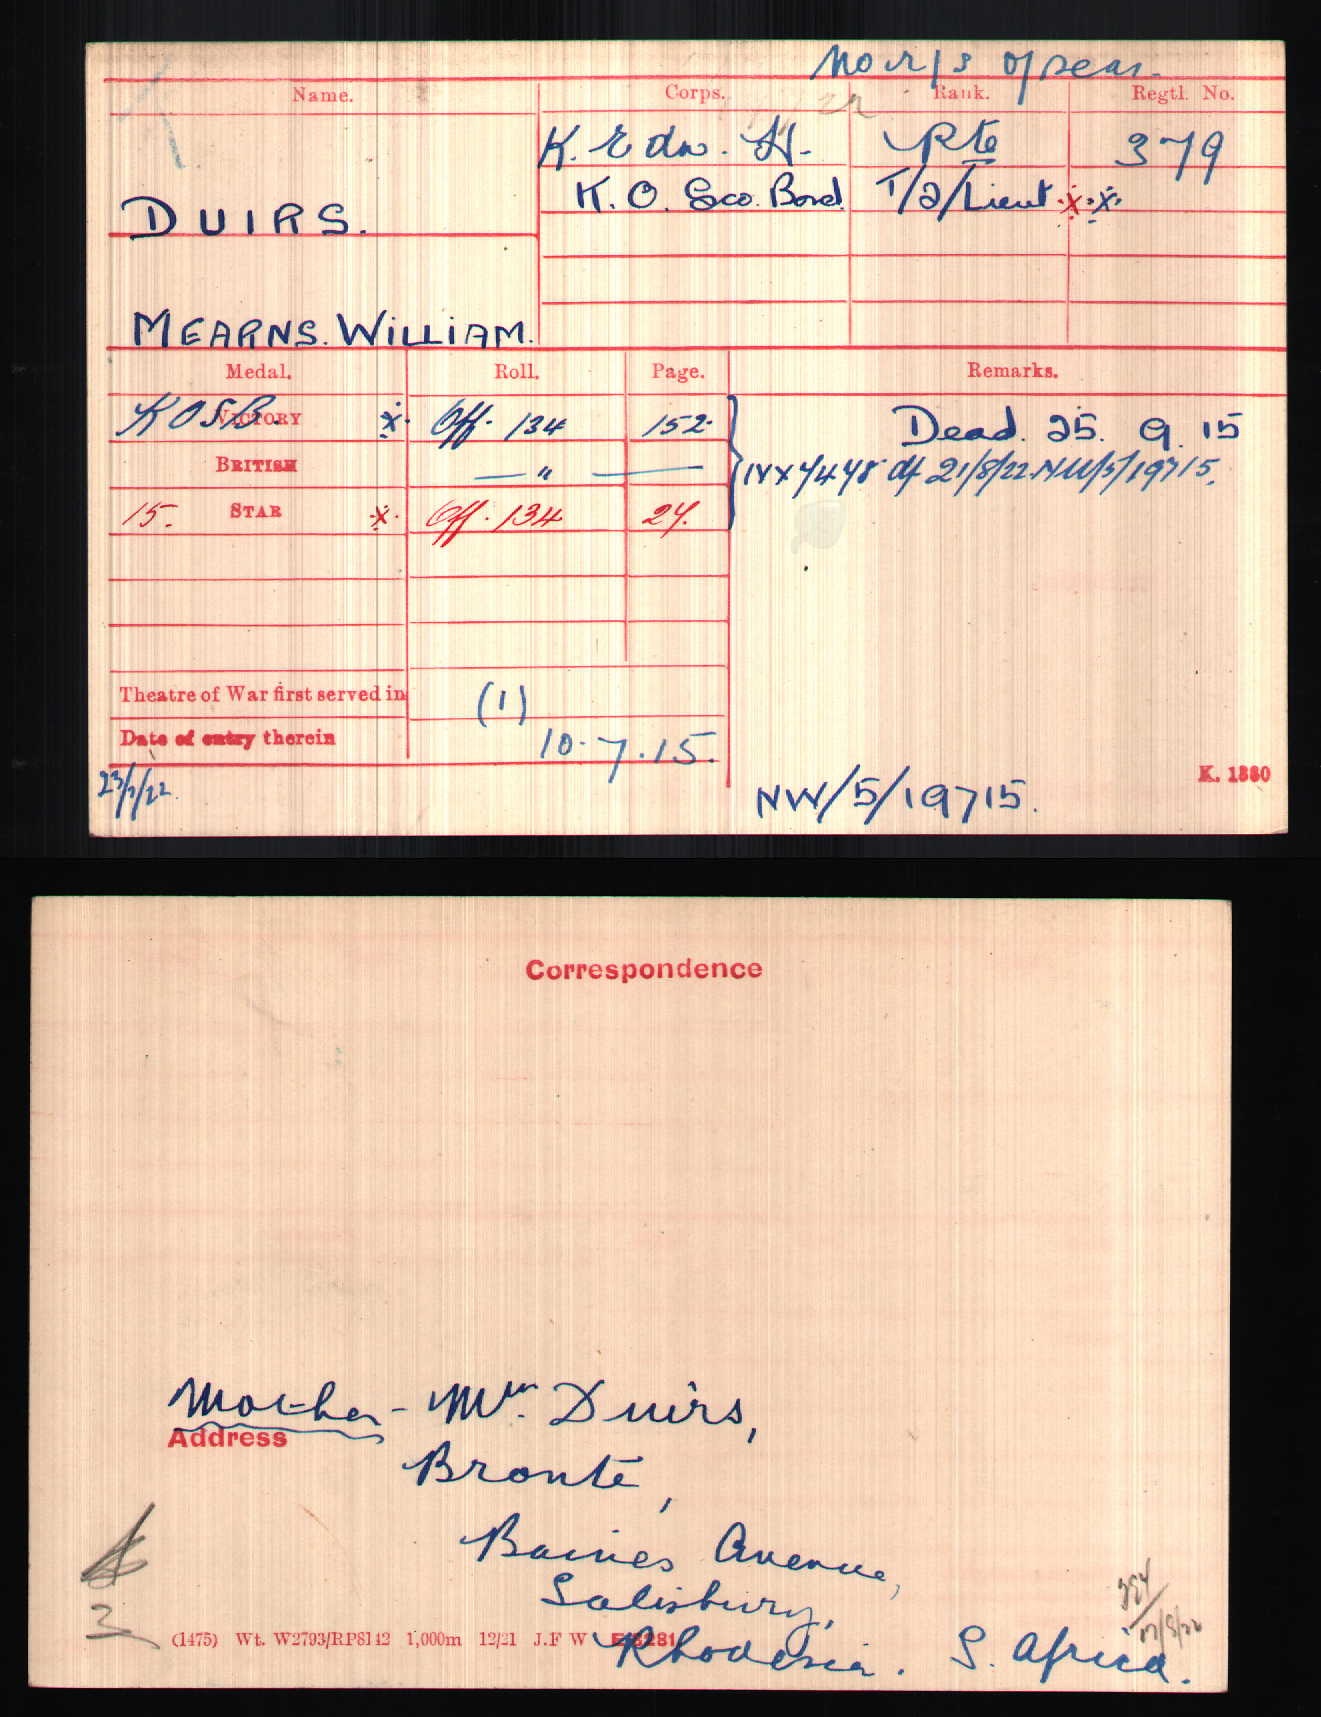 Name. Corps. Rank. Regtl. No.
K. Edw. H. Pte 379
K. O. Sco. Bord. T/2/Lieut. x x
DUIRS.
MEARNS. WILLIAM.
Medal. Roll. Page. Remarks.
KOSB. VICTORY x. Off. 134 152. Dead. 25. 9. 15
BRITISH — " — d/ 21/8/22. NW/5/19715.
15. STAR x. Off. 134 24.
Theatre of War first served in (1)
Date of entry therein 10. 7. 15.
K. 1380
NW/5/19715.
Correspondence
Mother - Mrs. Duirs,
Address
Bronte,
Baines Avenue,
Salisbury,
(1475) Wt. W2793/RP8142 1,000m 12/21 J.F W
Rhodesia. S. Africa.
3